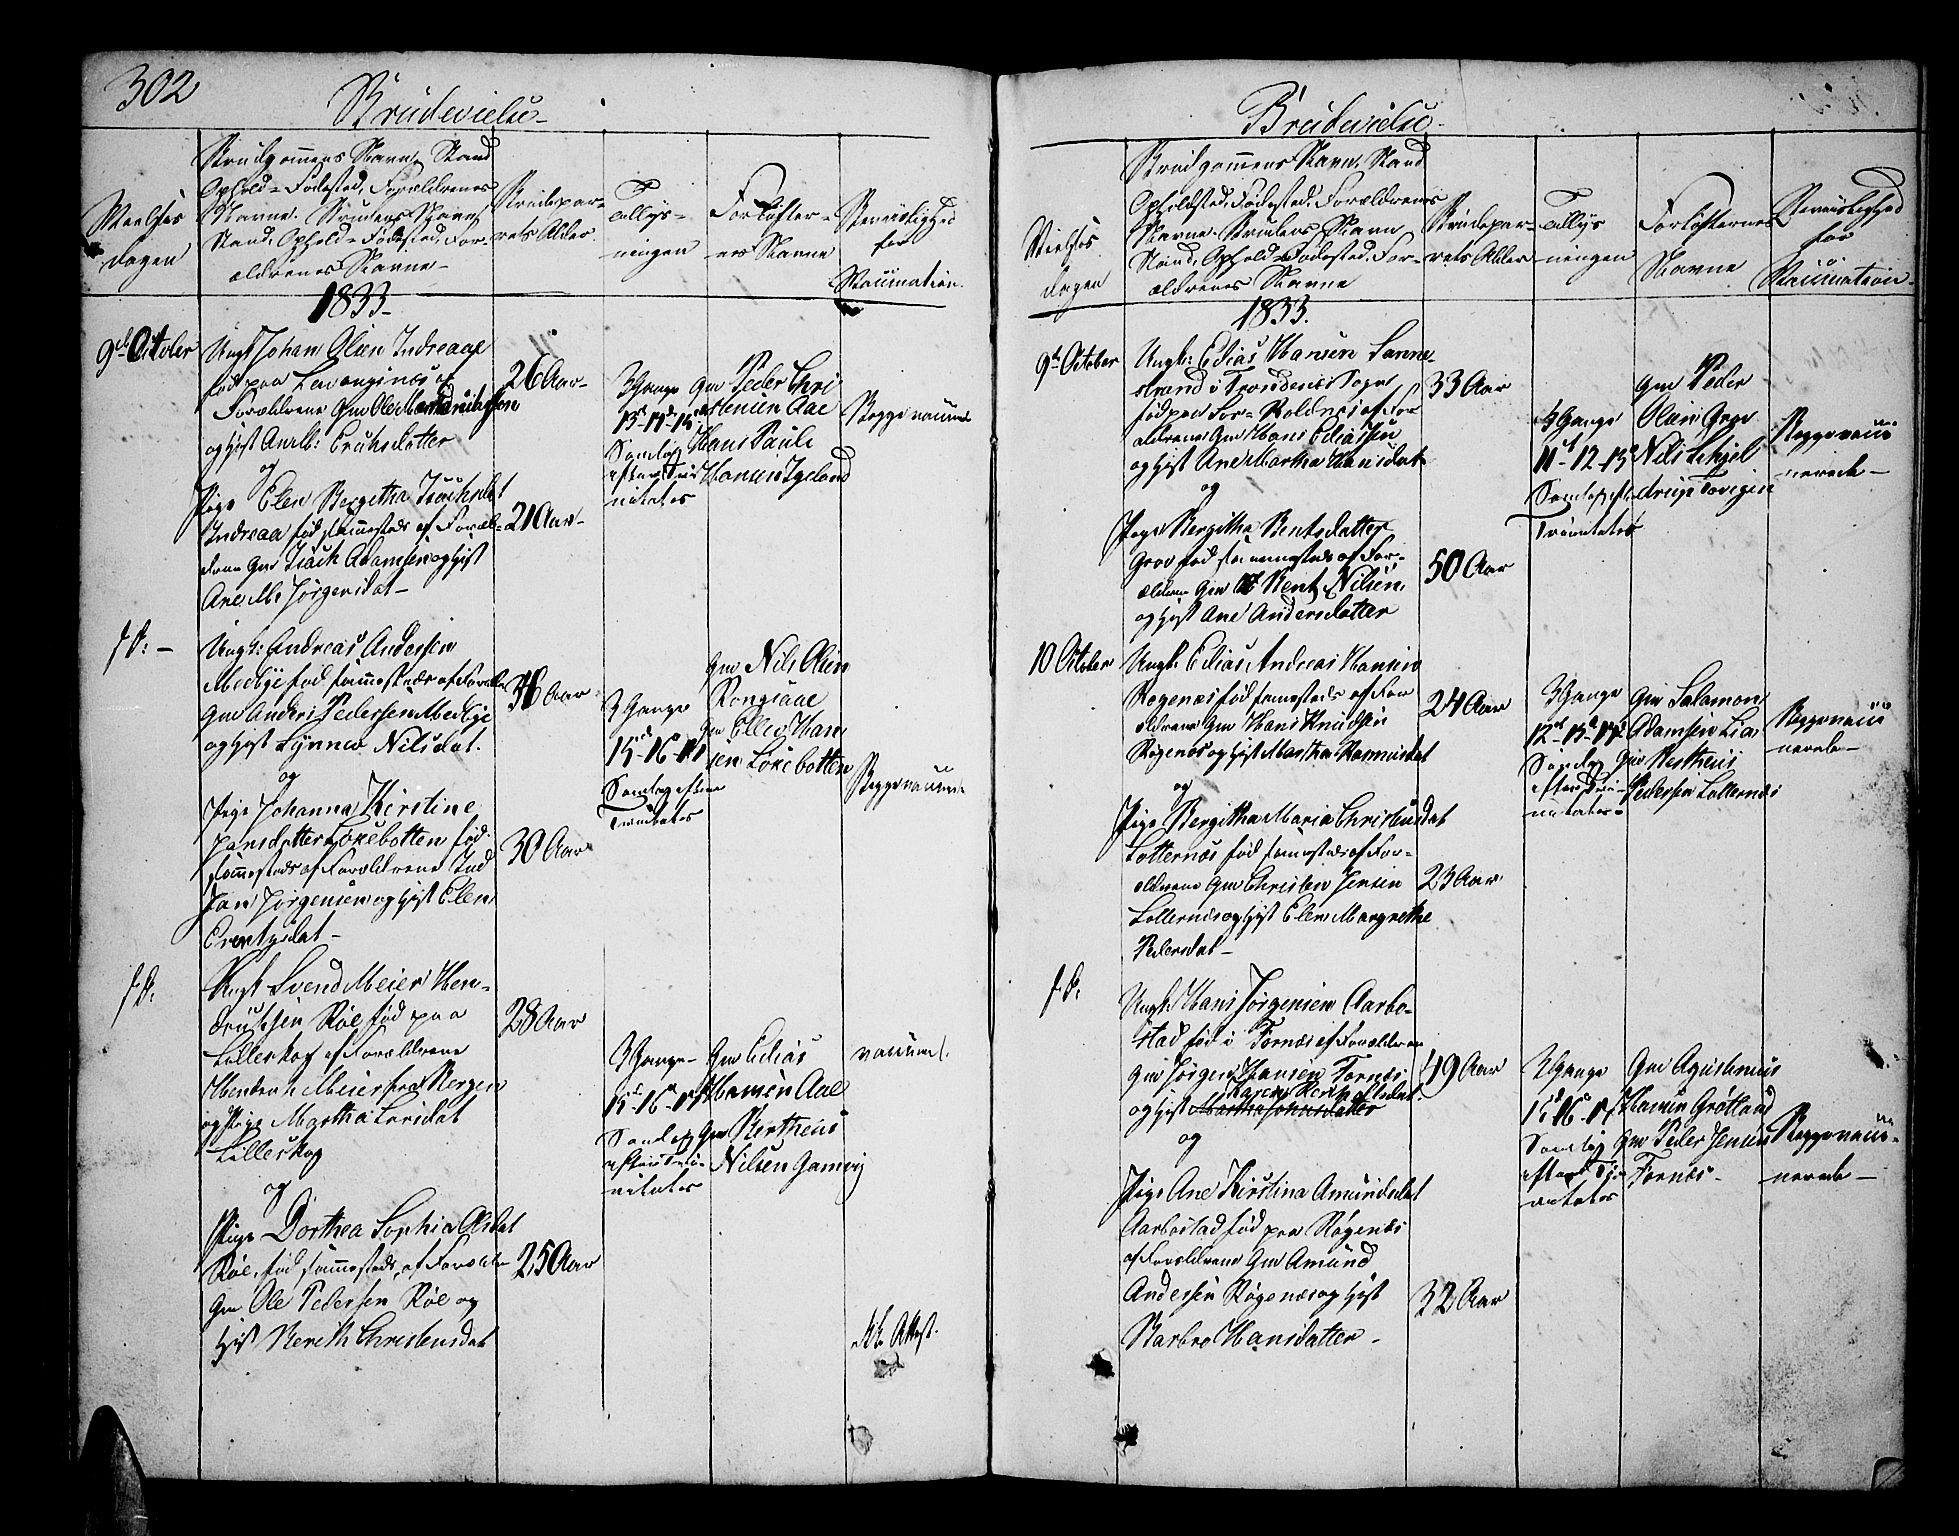 302
Brudevielse
Vielses
dagen
Brudgommens Navn, Stand
Ophold- Fødested, Forældrenes
Navne. Brudens Navn
Stand, Ophold- Fødested, For-
ældrenes Navne-
Brudepar-
rets Alder.
Forlofter-
nes Navne
for
Vaccination.
1833-
9de October
Ungk Johan Olsen Indreaae
født paa Levangsnæs af
Forældrene Gm Ole
og Hust
og
Pige Elen Bergitha Isachsdat
Indreaa fød sammesteds af Foræl-
drene Gm Isach Adamsen og Hust
Ane M. Jørgensdat-
26 Aar-
21 Aar-
3 Gange
13-14-15
Søndag
efter Tri
nitatis
Gm Peder Chri
stensen Aae
Hans Pauli
Hansen
Begge vaccine
f. D: -
Ungk: Andreas Andersen
Medbye fød sammesteds af Foræld
Gm Anders Pedersen Medbye
og Hust Synnev Nilsdat.
og
Pige Johanna Kirstine
Jansdatter Løxebotten fød
sammesteds af Forældrene
Jan Jørgensen og Hust Elen
38 Aar
30 Aar
3 Gange
15-16-17
Søndag efter
Trinitatis
Gm Nils Olsen
Gm Ellev Han
sen Løxebotten
Begge vaccine
f. D.
Ungk Svend Meier Hen-
dricksen Røe fød paa
Lilleskog af Forældrene
Hendrich Meier fra Bergen
og Pige Martha Larsdat
Lilleskog
og
Pige Dorthea Sophia Olsdat
Røe, fød sammesteds, af Foræld
Gm Ole Pedersen Røe og
Hust Bereth Christensdat
28 Aar
25 Aar
3 Gange-
15-16-17
Søndag
efter Tri-
nitatis
Gm Elias
Hansen Aae
Gm Bertheus
Nilsen Gamvig
vaccine.
Attest.
Brudevielse.
Vielses
dagen
Brudgommens Navn, Stand
Opholdsted, Fødested, Forældrenes
Navne. Brudens Navn
Stand, Ophold- Fødested, For-
ældrenes Navne
Brudepar-
rets Alder
Forlofternes
Navne
for
Vaccination-
1833.
9de October
Ungk: Elias Hansen Sanne-
strand i Trondenæs Sogn
fød paa For-
ældrene Gm Hans Eliassen
og Hust Ane Martha Hansdat
og
Pige Bergitha Bentsdatter
Grov fød sammesteds af For-
ældrene Gm Bent Nilsen,
og Hust Ane Andersdatter
33 Aar
50 Aar
3 Gange
11-12-13
Søndag eft.
Trinitatis
Gm Peder
Olsen Grov
Begge vacci
nerede-
10 October
Ungk. Elias Andreas Hansen
Røgenæs fød sammesteds af For
ældrene Gm Hans Knudsen
Røgenæs og Hust Martha Rasmusdat
og
Pige Bergitha Maria Christensdat
Lotternæs fød sammesteds af For-
ældrene Gm Christen Jensen
Lollernæs og Hust Elen Margrethe
Pedersdat-
24 Aar
23 Aar
3 Gange
12-13-14
Søndag
efter Tri-
nitatis-
Gm Salamon
Adamsen
Gm Bertheus
Pedersen Lollernæs
Begge vacci
nerede-
f. D.
Ungk. Hans Jørgensen Aarbo-
stad fød i Fornæs af Forældrene
Gm Jørgen Hansen Fornæs
og Hust Martha Johansdatter
og
Pige Ane Kirstina Amundsdat
Aarbostad fød paa Røgenæs
af Forældrene Gm Amund
Andersen Røgenæs og Hust
Barbro Hansdatter-
49 Aar
32 Aar
3 Gange
15-16-17
Søndag
efter Tri
nitatis
Gm Agustinus
Hansen Grøtland
Gm Peder Jensen
Fornæs-
Begge vacci-
nerede-